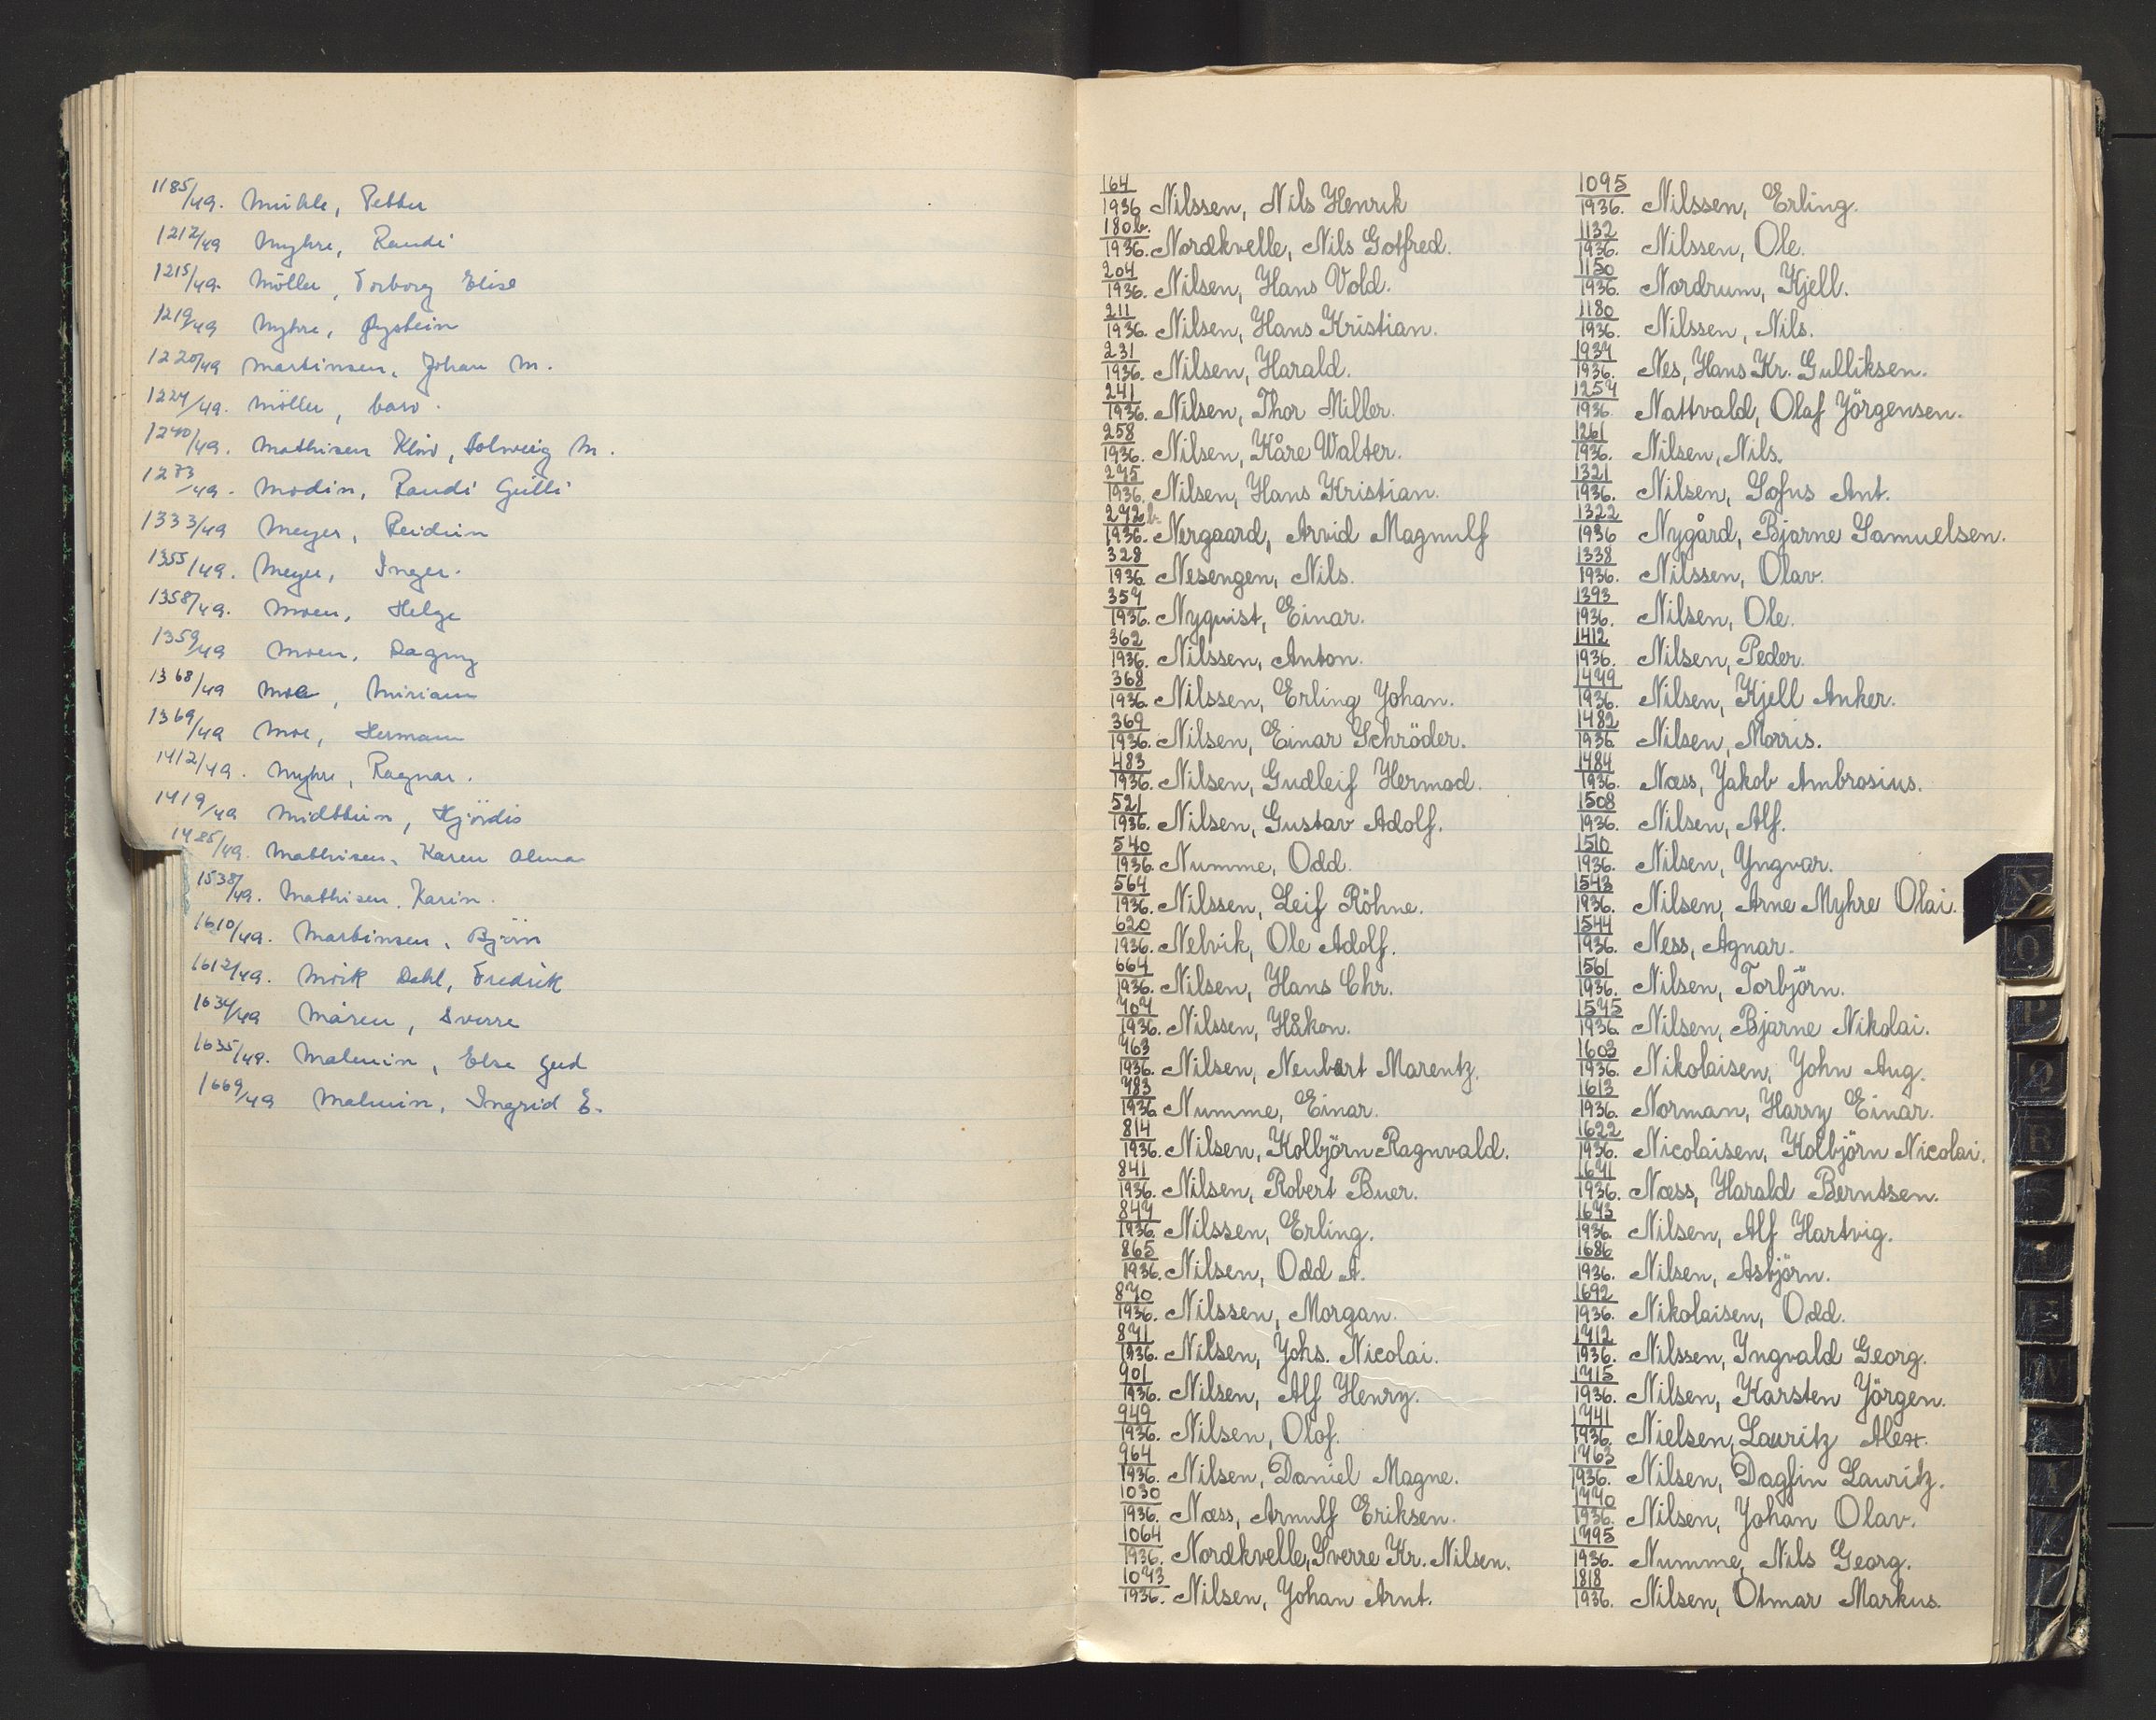 1185/49. Mühle, Petter
1212/49 Myhre, Randi
1215/49. Möller, Torborg Elise
1219/49 Myhre, Øystein
1220/49 Martinsen, Johan M.
1224/49. Möller,
1240/49. Mathisen Kløv, Solveig M.
1273/49. Modin, Randi Gulli
1333/49 Meyer, Reidun
1355/49. Meyer, Inger.
1358/49. Moen, Helge
1359/49 Moen, Dagny
1368/49 Moe, Miriam
1369/49 Moe, Hermann
1412/49. Myhre, Ragnar.
1419/49 Midttun, Hjördis
1485/49. Mathisen, Karen Alma
1538/49. Mathisen, Karin.
1610/49. Martinsen, Björn
1612/49. Mörk Dahl, Fredrik
1634/49 Maren, Sverre
1635/49. Malmin, Else Gud
1669/49 Malmin, Ingrid E.
164/1936 Nilssen, Nils Henrik
180b./1936. Nordkvelle, Nils Gotfred.
204/1936. Nilsen, Hans Vold.
211/1936. Nilsen, Hans Kristian.
231/1936. Nilsen, Harald.
241/1936. Nilsen, Thor Miller.
258/1936. Nilsen, Kåre Walter.
275/1936. Nilsen, Hans Kristian.
272b/1936. Nergaard, Arvid Magnulf
328/1936. Nesengen, Nils.
357/1936. Nyquist, Einar.
362/1936. Nilssen, Anton.
368/1936. Nilssen, Erling Johan.
369/1936. Nilsen, Einar Schröder.
483/1936. Nilsen, Gudleif Hermod.
521/1936. Nilsen, Gustav Adolf.
540/1936. Numme, Odd.
564/1936. Nilssen, Leif Röhne.
620/1936. Nelvik, Ole Adolf.
664/1936. Nilsen, Hans Chr.
707/1936. Nilssen, Håkon.
763/1936. Nilsen, Neubert Marentz.
783/1936 Numme, Einar.
814/1936. Nilsen, Kolbjörn Ragnvald.
841/1936. Nilsen, Robert Buer.
847/1936. Nilssen, Erling.
865/1936. Nilsen, Odd A.
870/1936. Nilssen, Morgan.
871/1936. Nilsen, Johs. Nicolai.
901/1936. Nilsen, Alf Henry.
949/1936. Nilsen, Olof.
964/1936. Nilsen, Daniel Magne.
1030/1936. Næss, Arnulf Eriksen.
1064/1936. Nordkvelle, Sverre Kr. Nilsen.
1073/1936. Nilsen, Johan Arnt.
1095/1936. Nilssen, Erling.
1132/1936. Nilssen, Ole.
1150/1936. Nordrum, Kjell.
1180/1936. Nilssen, Nils.
1937/1936. Nes, Hans Kr. Gulliksen.
1257/1936. Nattvald, Olaf Jörgensen.
1261/1936. Nilsen, Nils.
1321/1936. Nilsen, Sofus Ant.
1322/1936 Nygård, Bjarne Samuelsen.
1338/1936. Nilssen, Olav.
1393/1936. Nilsen, Ole.
1412/1936. Nilsen, Peder.
1479/1936. Nilsen, Kjell Anker.
1482/1936. Nilsen, Morris.
1484/1936. Næss, Jakob Ambrosius.
1508/1936. Nilsen, Alf.
1510/1936. Nilsen, Yngvar.
1543/1936. Nilsen, Arne Myhre Olai.
1544/1936. Ness, Agnar.
1561/1936. Nilsen, Torbjörn.
1575/1936. Nilsen, Bjarne Nikolai.
1603/1936. Nikolaisen, John Aug.
1613/1936. Norman, Harry Einar.
1622/1936. Nicolaisen, Kolbjörn Nicolai.
1671/1936. Næss, Harald Berntsen.
1673/1936. Nilsen, Alf Hartvig.
1686/1936. Nilsen, Asbjörn.
1692/1936. Nikolaisen, Odd.
1712/1936. Nilssen, Ingvald Georg.
1715/1936. Nilsen, Karsten Jörgen.
1741/1936. Nielsen, Lauritz Alex.
1763/1936. Nilsen, Dagfin Lauritz.
1770/1936. Nilsen, Johan Olav.
1795/1936. Numme, Nils Georg.
1818/1936. Nilsen, Otmar Markus.
N
O
P
Q
R